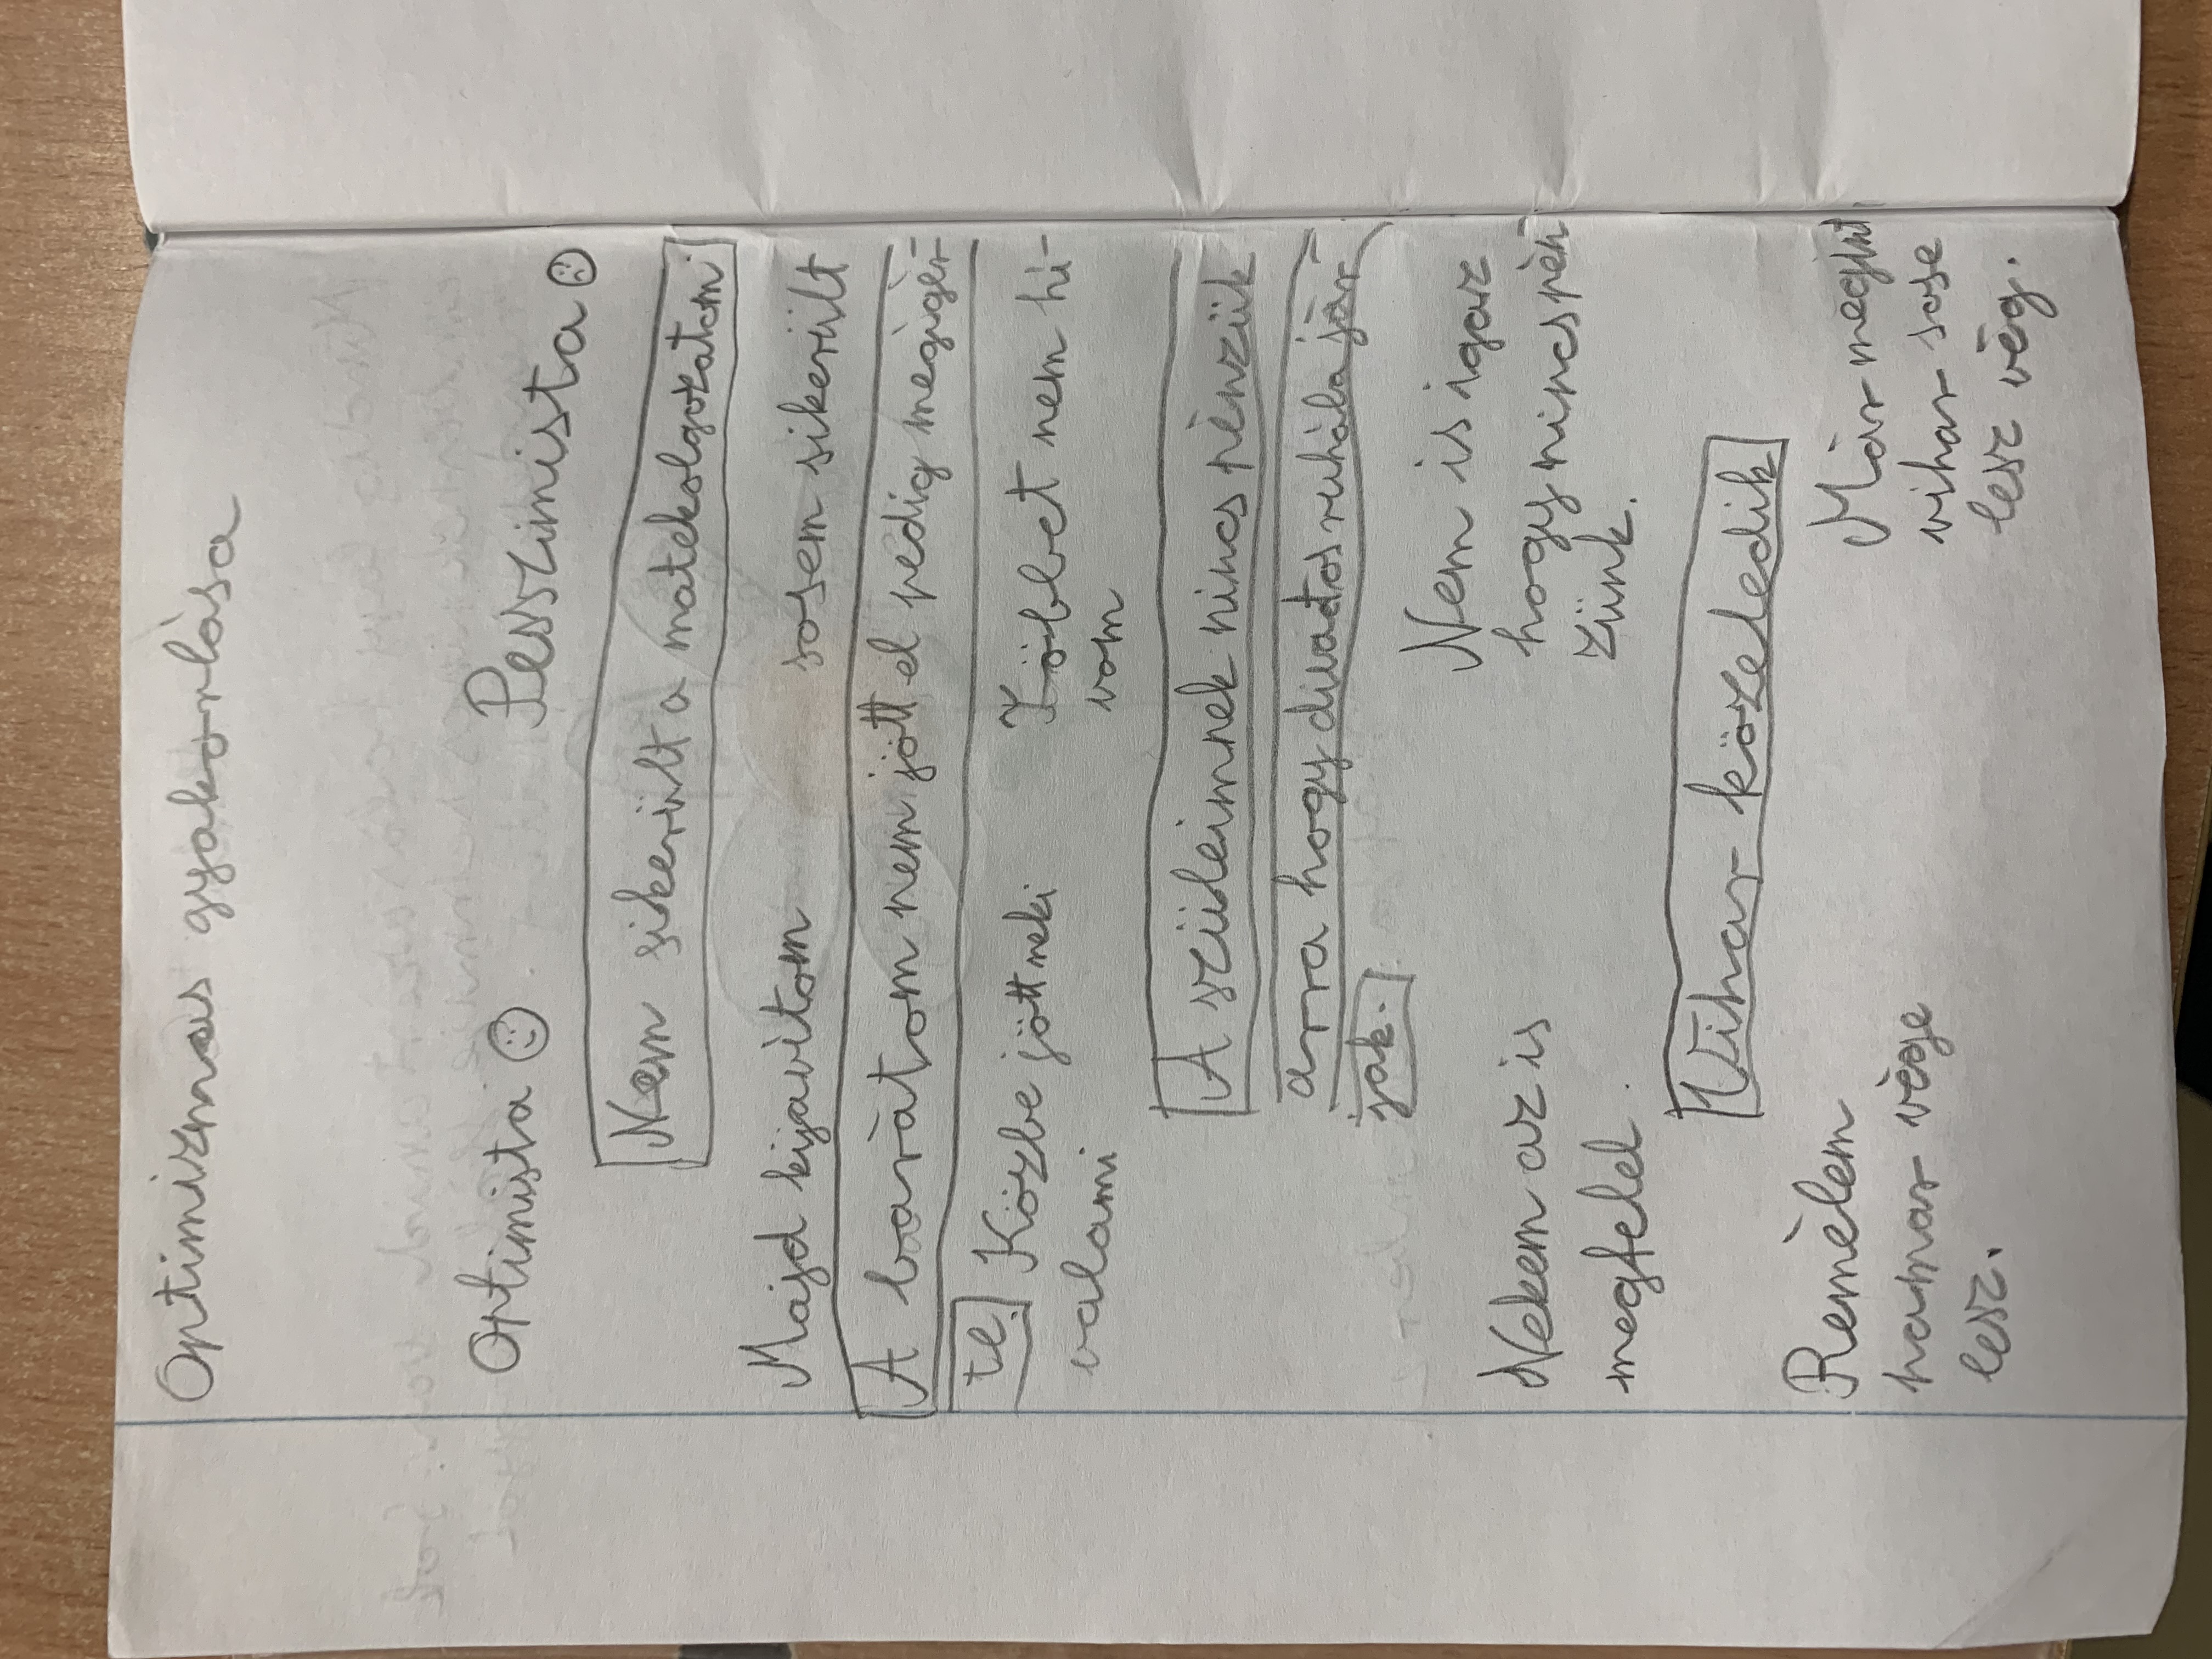 Optimizmus gyakorlása
Optimista ☺ Pesszimista ☹
Nem sikerült a matekdolgozatom.
Majd kijavitom sosem sikerült
A barátom nem jött el pedig megigér-
te. Közbe jött neki Többet nem hi-
valami vom
A szüleimnek nincs pénzük
arra hogy divatos ruhába jár-
jak.
Nekem az is Nem is igaz
megfelel. hogy nincs pén
zünk.
Vihar közeledik
Remélem Már megint
hamar vége vihar sose
lesz. lesz vég.